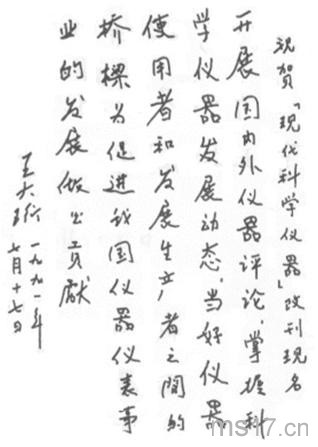 祝贺「现代科学仪器」改刊现名
开展国内外仪器评论,掌握科
学仪器发展动态,当好仪器
使用者和发展生产者之间的
桥樑为促进我国仪器仪表事
业的发展做出贡献
王大珩 一九九一年
七月十七日
ms17.cn